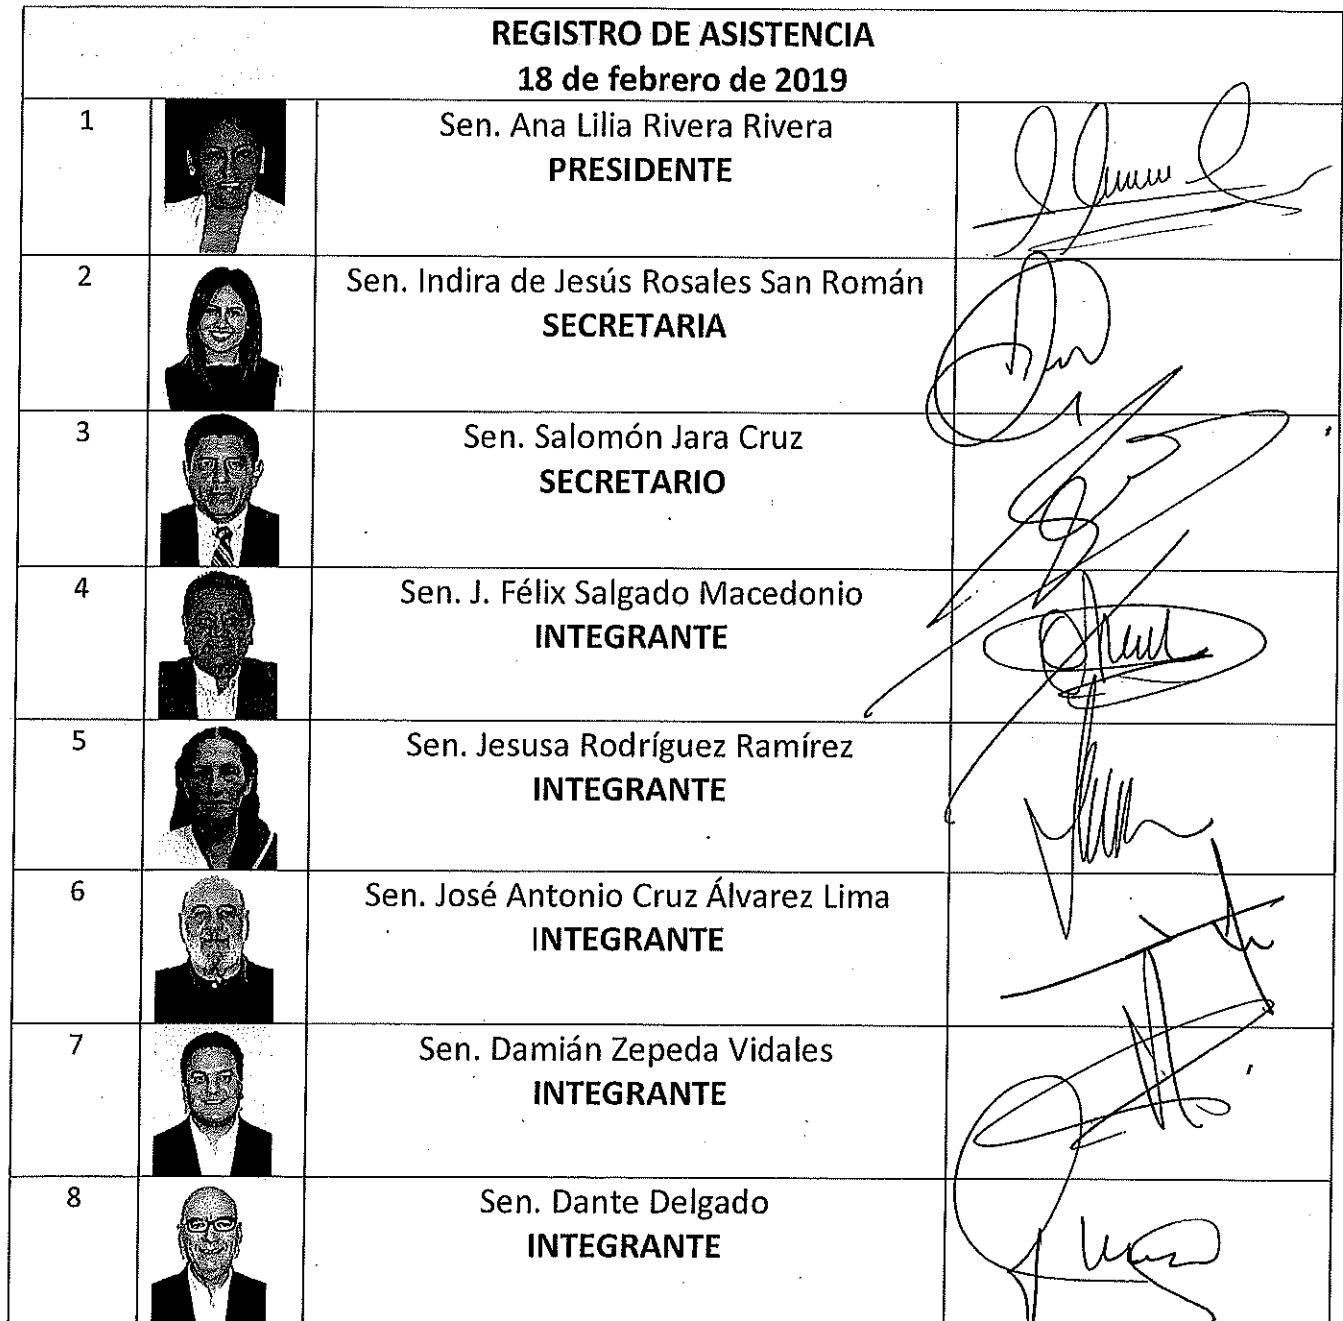 REGISTRO DE ASISTENCIA
18 de febrero de 2019
1
Sen. Ana Lilia Rivera Rivera
PRESIDENTE
2
Sen. Indira de Jesús Rosales San Román
SECRETARIA
3
Sen. Salomón Jara Cruz
SECRETARIO
4
Sen. J. Félix Salgado Macedonio
INTEGRANTE
5
Sen. Jesusa Rodríguez Ramírez
INTEGRANTE
6
Sen. José Antonio Cruz Álvarez Lima
INTEGRANTE
7
Sen. Damián Zepeda Vidales
INTEGRANTE
8
Sen. Dante Delgado
INTEGRANTE